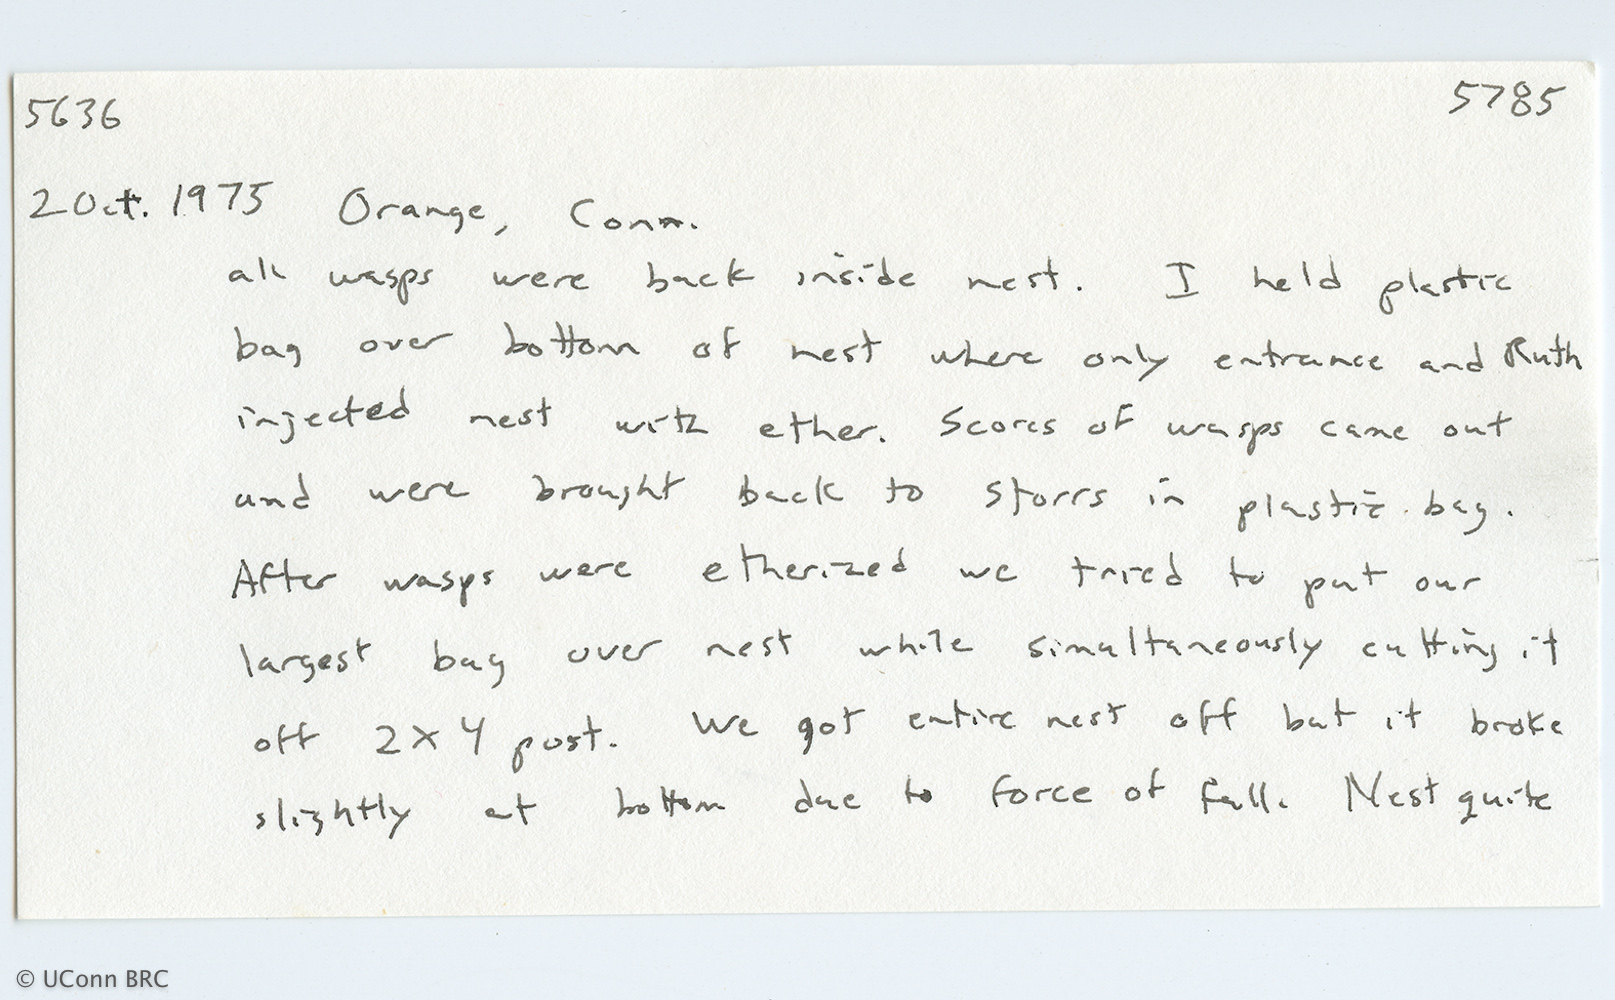 5636 5785
2 Oct. 1975 Orange, Conn.
all wasps were back inside nest. I held plastic
bag over bottom of nest where only entrance and Ruth
injected nest with ether. Scores of wasps came out
and were brought back to Storrs in plastic bag.
After wasps were etherized we tried to put our
largest bag over nest while simultaneously cutting it
off 2x4 post. We got entire nest off but it broke
slightly at bottom due to force of fall. Nest quite
© UConn BRC